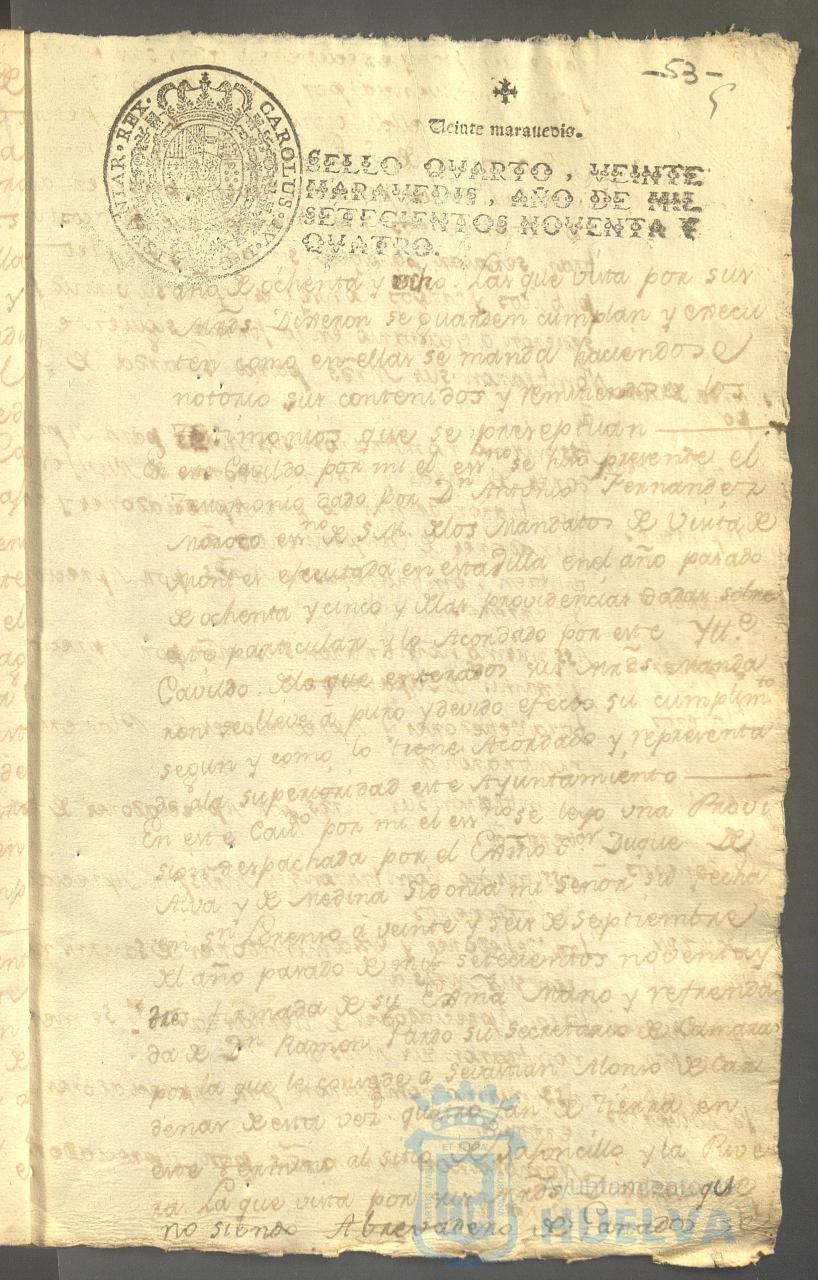 -53-
5
Veinte marauedis.
CAROLUS · IV · D · G · HISP · ET · IND · REX ·
SELLO QVARTO, VEINTE
MARAVEDIS, AÑO DE MIL
SETECIENTOS NOVENTA Y
QVATRO.
año de ochenta y ocho. Las que vista por sus
Mrds. Dixeron se guarden cumplan y execu
ten como en ellas se manda haciendose
notorio sus contenidos y remitiendose los
testimonios que se preceptuan
En este Cavildo por mi el essno. se hizo presente el
Testimonio dado por Dn Antonio Fernandez
essno de S.M. de los Mandatos de Visita de
Montes efecutada en esta Villa en el año pasado
de ochenta y cinco y de las providencias dadas sobre
este particular y lo Acordado por este Ytte
Cavildo. de lo que enterados sus Mrds. Manda
ron se lleve à puro y devido efecto su cumplimto
segun y como lo tiene Acordado y representa
do ala superioridad este Ayuntamiento
En este Cavdo. por mi el essno se leyo una Provi
sion despachada por el Exmo sor Duque de
Alva y de Medina Sidonia mi Señor su fecha
en Sn Lorenzo à veinte y seis de Septiembre
del año pasado de mil setecientos noventa y
tres firmada de su Exma Mano y refrenda
da de Dn Ramon Pardo su Secretario de Camara
por la que le concede a Sevastian Alonso de Car
denas de esta vez. quatro fan. de tierra en
este termino al sitio de Safoncillo y la Rive
ra. La que vista por sus Mrds. que
no siendo Abrevadero de Ganados
Ayuntamiento
HUELVA